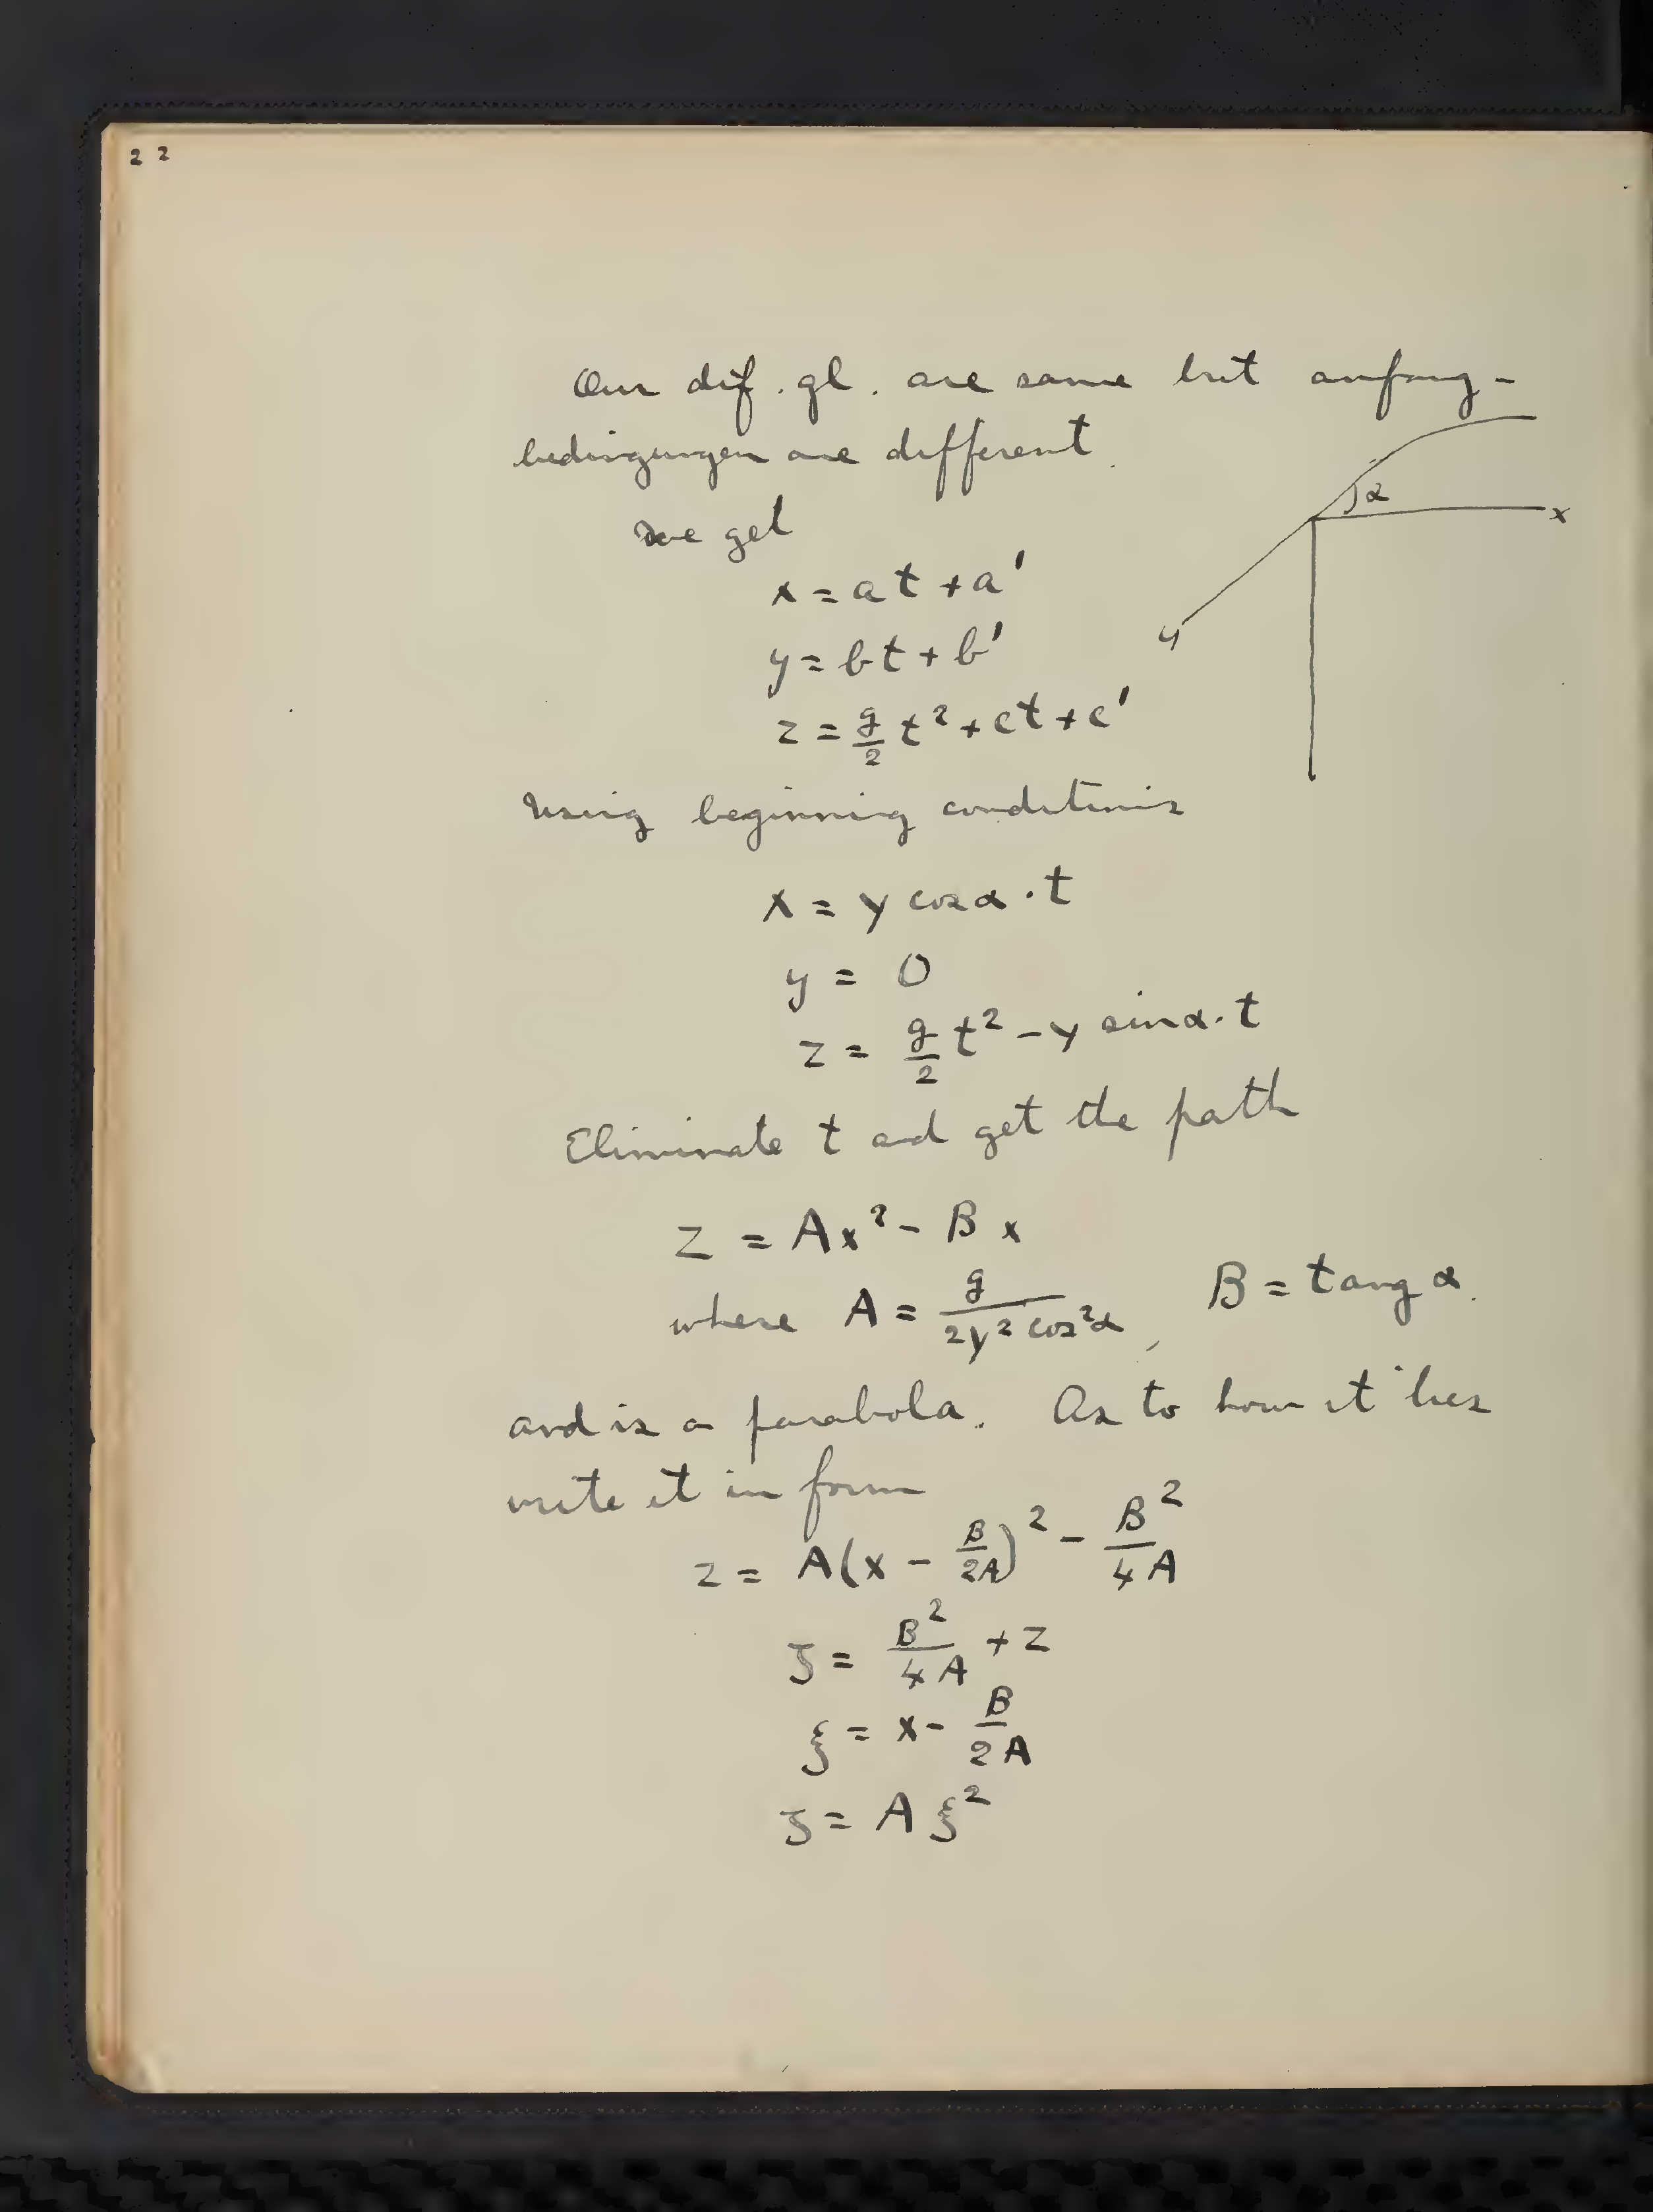 22
Our dif. gl. are same but anfang-
bedingungen are different.
α
x
y
We get
x = at + a'
y = bt + b'
z = g/2 t² + ct + c'
Using beginning conditions
x = γ cos α · t
y = 0
z = g/2 t² - γ sin α · t
Eliminate t and get the path
z = Ax² - Bx
where A = g/(2γ² cos² α), B = tang α.
and is a parabola. As to how it lies
write it in form
z = A(x - B/2A)² - B²/4A
ζ = B²/4A + z
ξ = x - B/2A
ζ = A ξ²